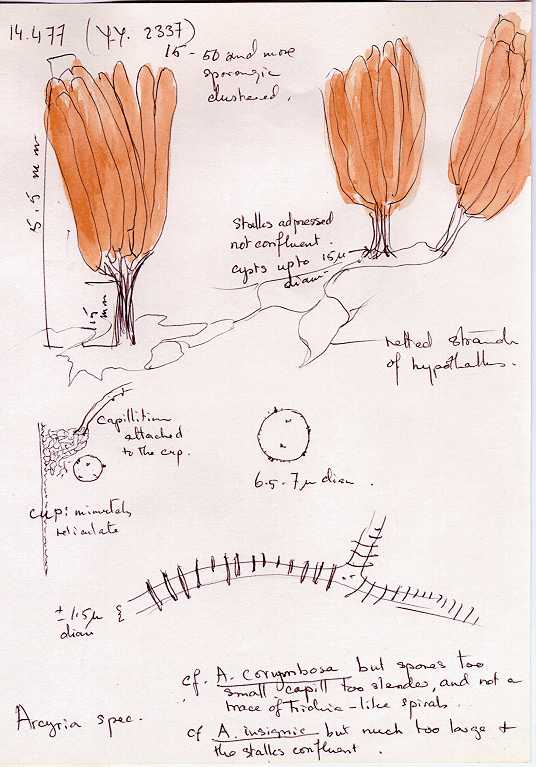 14.477 (Y.Y. 2337)
15 - 50 and more
sporangia
clustered.
5.5 mm
1.5 mm
Stalks adpressed
not confluent.
cysts upto 15µ
diam
netted strands
of hypothallus.
capillitium
attached
to the cup.
cup: minutely
reticulate
6.5-7µ diam.
± 1.5µ
diam
Arcyria spec.
cf. A. corymbosa but spores too
small, capill too slender, and not a
trace of Trichia-like spirals.
cf A. insignis but much too large +
the stalks confluent.